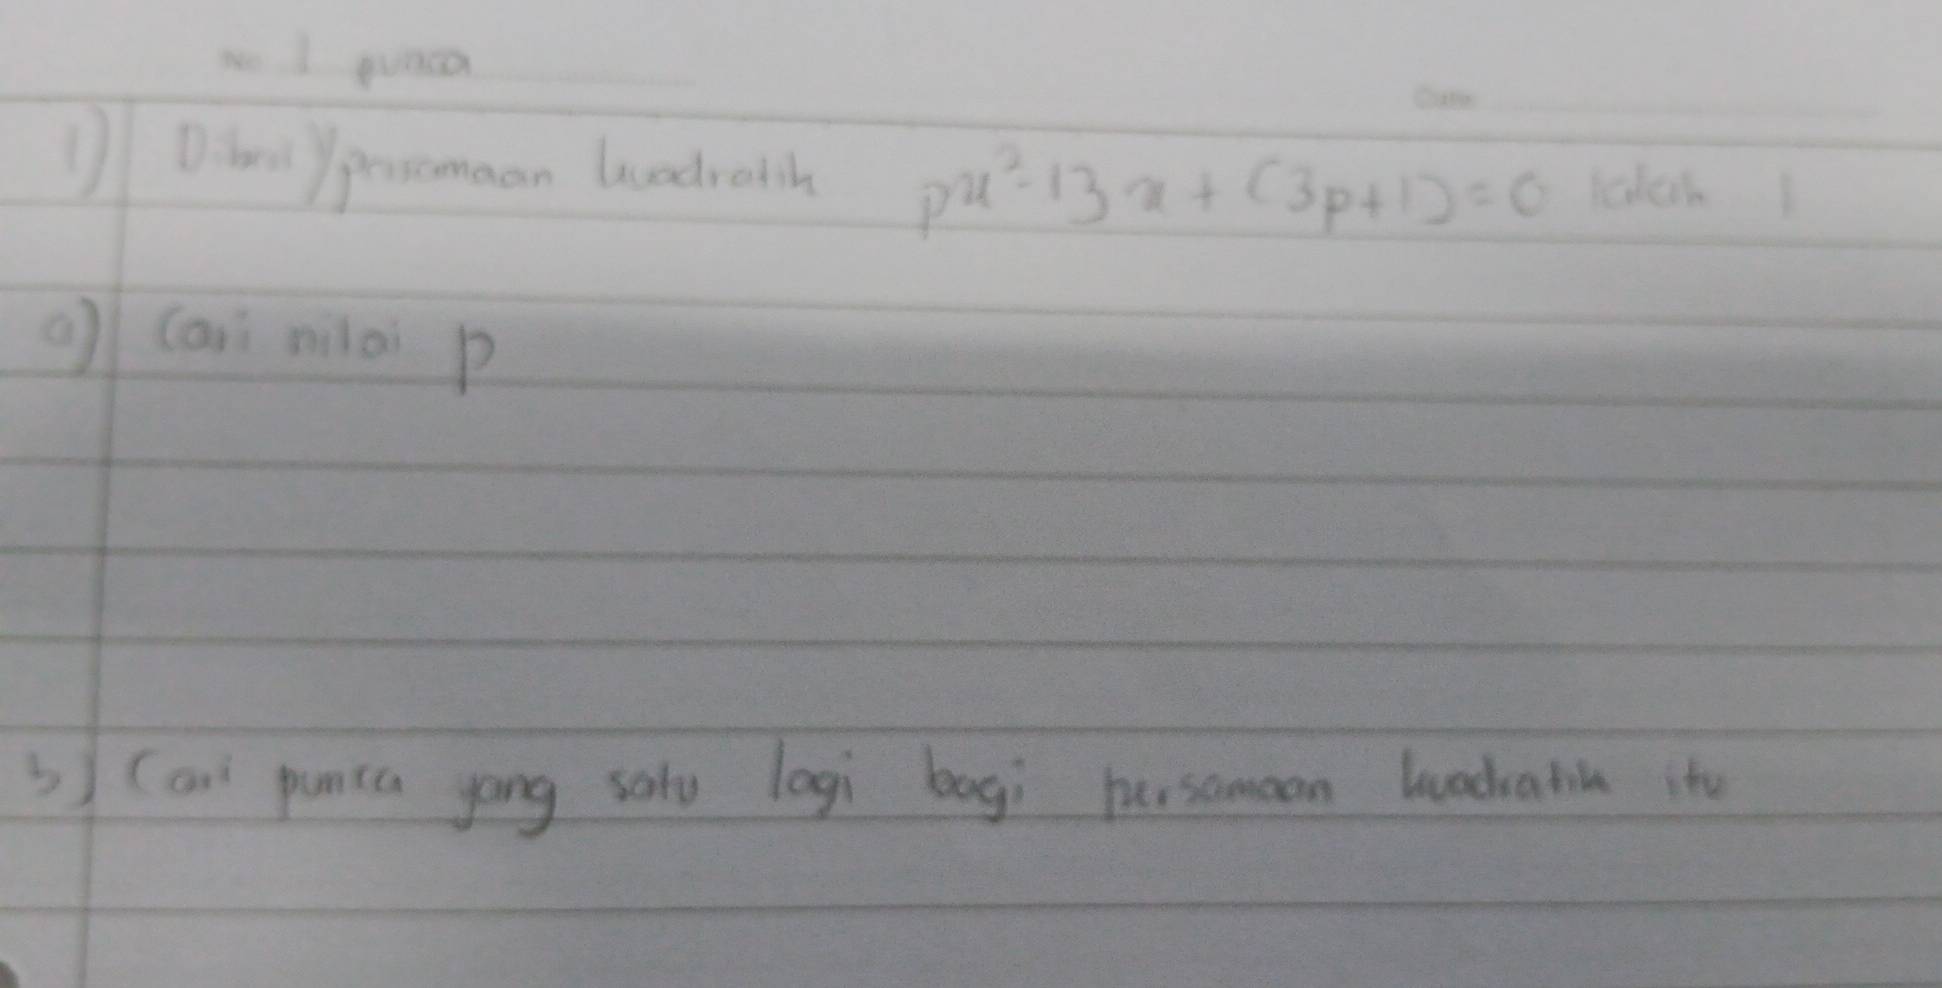 No 1 punca
Date
1) Diberi persamaan kuadratik px² - 13x + (3p+1) = 0 ialah 1
a) Cari nilai p
b) Cari punca yang satu lagi bagi persamaan kuadratik itu